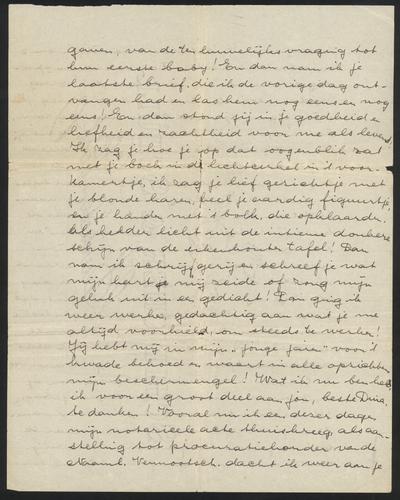 gaven, van de ten huwelijks vraging tot
hun eerste baby! En dan nam ik je
laatste brief, die ik de vorige dag ont-
vangen had en las hem nog eens en nog
eens! En dan stond jij in je goedheid en
liefheid en zachtheid voor me als levend
Ik zag je hoe je op dat oogenblik zat
met je boek in de lichtcirkel in 't voor-
kamertje, ik zag je lief gezichtje met
je blonde haren, heel je aardig figuurtje
en je handen met 't boek, die opklaarden
als helder licht uit de intieme donkere
schijn van de eikenhouten tafel! Dan
nam ik schrijfgerij en schreef je wat
mijn hart je mij zeide of zong mijn
geluk uit in een gedicht! Dan ging ik
weer werken, gedachtig aan wat je me
altijd voorhield, om steeds te werken!
Jij hebt mij in mijn "jonge jaren" voor 't
kwade behoed en waart in alle oprechtheid
mijn beschermengel! Wat ik nu ben heb
ik voor een groot deel aan jou, beste
te danken! Vooral nu ik een dezer dagen
mijn notarieele acte thuiskreeg, als aan-
stelling tot procuratiehouder van de
Naaml. Vennootsch. dacht ik weer aan je